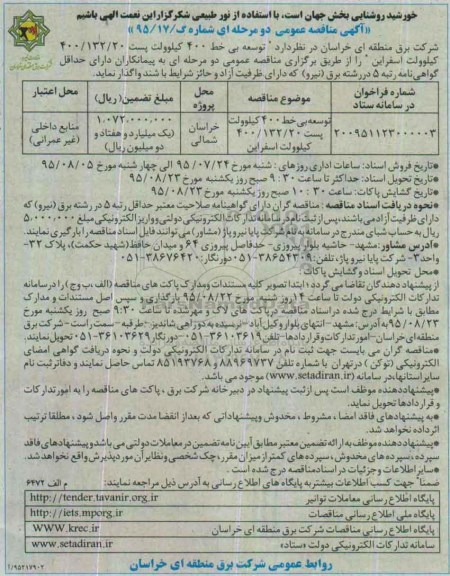 خورشید روشنایی بخش جهان است، با استفاده از نور طبیعی شکرگزار این نعمت الهی باشیم
«آگهی مناقصه عمومی دو مرحله ای شماره گ/۹۵/۱۷»
شرکت برق منطقه ای خراسان در نظر دارد " توسعه بی خط ۴۰۰ کیلوولت پست ۴۰۰/۱۳۲/۲۰
کیلوولت اسفراین " را از طریق برگزاری مناقصه عمومی دو مرحله ای به پیمانکاران دارای حداقل
گواهی نامه رتبه ۵ در رشته برق (نیرو) که دارای ظرفیت آزاد و حائز شرایط باشند واگذار نماید.
شماره فراخوان در سامانه ستاد | موضوع مناقصه | محل پروژه | مبلغ تضمین (ریال) | محل اعتبار
۲۰۰۹۵۱۱۲۳۰۰۰۰۰۳ | توسعه بی خط ۴۰۰ کیلوولت پست ۴۰۰/۱۳۲/۲۰ کیلوولت اسفراین | خراسان شمالی | ۱.۰۷۲.۰۰۰.۰۰۰ (یک میلیارد و هفتاد و دو میلیون ریال) | منابع داخلی (غیر عمرانی)
*تاریخ فروش اسناد: ساعات اداری روزهای : شنبه مورخ ۹۵/۰۷/۲۴ الی چهار شنبه مورخ ۹۵/۰۸/۰۵
*تاریخ تحویل اسناد: حداکثر تا ساعت ۹:۳۰ صبح روز یکشنبه مورخ ۹۵/۰۸/۲۳
*تاریخ گشایش پاکات: ساعت ۱۰:۳۰ صبح روز یکشنبه مورخ ۹۵/۰۸/۲۳
*نحوه دریافت اسناد مناقصه : مناقصه گران دارای گواهینامه صلاحیت معتبر حداقل رتبه ۵ در رشته برق (نیرو) که
دارای ظرفیت آزاد می باشند، پس از ثبت نام در سامانه تدارکات الکترونیکی دولتی و واریز الکترونیکی مبلغ ۵.۰۰۰.۰۰۰
ریال به حساب شبای مندرج در سامانه به نام شرکت پایا نیرو پاژ (مشاور) می توانند فایل اسناد مناقصه را بارگیری نمایند.
*آدرس مشاور: مشهد- حاشیه بلوار پیروزی- حد فاصل پیروزی ۶۴ و میدان حافظ (شهید حکمت)، پلاک ۳۲-
واحد ۳- شرکت پایا نیرو پاژ، تلفن: ۳۸۶۵۴۳۰۹-۰۵۱ دورنگار: ۳۸۶۷۶۴۲۰-۰۵۱
*محل تحویل اسناد و گشایش پاکات:
از پیشنهاد دهندگان تقاضا می گردد ؛ ابتدا تصویر کلیه مستندات و مدارک پاکت های مناقصه (الف، ب و ج) را در سامانه
تدارکات الکترونیکی دولت تا ساعت ۱۴ روز شنبه مورخ ۹۵/۰۸/۲۲ بارگذاری و سپس اصل مستندات و مدارک
مطابق با شرایط درج شده در اسناد مناقصه در پاکت های لاک و مهر شده تا ساعت ۹:۳۰ صبح روز یکشنبه مورخ
۹۵/۰۸/۲۳ به آدرس: مشهد- انتهای بلوار وکیل آباد- نرسیده به دو راهی شاندیز-طرقبه- سمت راست- شرکت برق
منطقه ای خراسان- امور تدارکات و قراردادها- تلفن ۳۶۱۰۳۶۱۹-۰۵۱ دورنگار: ۳۶۱۰۳۶۲۹-۰۵۱ تحویل نمایند.
*مناقصه گران می بایست جهت ثبت نام در سامانه تدارکات الکترونیکی دولت و نحوه دریافت گواهی امضای
الکترونیکی (توکن ) در تهران با شماره تلفن ۸۸۹۶۹۷۳۷ و ۸۵۱۹۳۷۶۸ تماس حاصل نمایند و دفاتر ثبت نام
سایر استانها، در سامانه (www.setadiran.ir) موجود می باشد.
*پیشنهاد دهنده موظف است پس از ثبت پیشنهاد در دبیرخانه شرکت برق ، پاکت های مناقصه را به امور تدارکات
و قراردادها تحویل نماید.
*به پیشنهادهای فاقد امضاء، مشروط ، مخدوش و پیشنهاداتی که بعد از انقضا مدت مقرر واصل شود ، مطلقا ترتیب
اثر داده نخواهد شد.
*پیشنهاددهنده موظف به ارائه تضمین معتبر مطابق آیین نامه تضمین در معاملات دولتی می باشد و پیشنهادهای فاقد
سپرده ، سپرده های مخدوش ، سپرده های کمتر از میزان مقرر ، چک شخصی و نظایر آن مورد پذیرش واقع نخواهد شد.
*سایر اطلاعات و جزئیات در اسناد مناقصه درج شده است .
ضمناً جهت کسب اطلاعات بیشتر به پایگاه های اطلاع رسانی به آدرس ذیل مراجعه نمایند: م الف ۶۴۷۲
پایگاه اطلاع رسانی معاملات توانیر | http://tender.tavanir.org.ir
پایگاه ملی اطلاع رسانی مناقصات | http://iets.mporg.ir
پایگاه اطلاع رسانی مناقصات شرکت برق منطقه ای خراسان | WWW.krec.ir
سامانه تدارکات الکترونیکی دولت «ستاد» | www.setadiran.ir
روابط عمومی شرکت برق منطقه ای خراسان
۹۵۲۱۷۹۰۲/ا